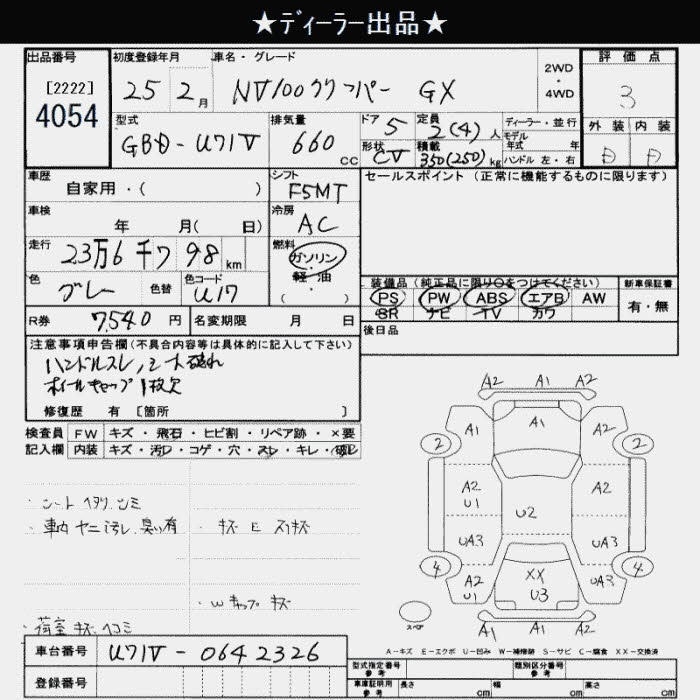 ★ディーラー出品★
出品番号
[2222]
4054
初度登録年月
25 2月
車名・グレード
NV100クリッパー GX
2WD
・
4WD
評価点
3
外装 内装
D D
型式
GBD-U71V
排気量
660 cc
ドア 5
形状 CV
定員 2(4)人
積載 350(250)kg
ディーラー・並行
モデル
年式 年
ハンドル 左・右
車歴
自家用・( )
シフト
F5MT
セールスポイント (正常に機能するものに限ります)
車検
年 月( 日)
冷房
AC
走行
23万6千798km
燃料
ガソリン
・
軽油
( )
色
グレー
色替
色コード
U17
装備品(純正品に限り○をつけてください)
PS PW ABS エアB AW
SR ナビ TV カワ
新車保証書
有・無
R券 7,540円
名変期限 月 日
後日品
注意事項申告欄(不具合内容等は具体的に記入して下さい)
ハンドルスレ,シート破れ
ホイールキャップ1枚欠
修復歴 有 [箇所 ]
検査員 FW キズ・飛石・ヒビ割・リペア跡・×要
記入欄 内装 キズ・汚レ・コゲ・穴・スレ・キレ・破レ
・シート ヘタリ,シミ
・車内 ヤニ汚レ,臭い有
・キズ E スリキズ
・Wキャップ キズ
・荷室 キズ ヘコミ
A2 A1 A2
A1 A1 A2
2 2
A2 A2
U1 U2
UA3 UA3
4 4
A2 XX UA3
U1 U3
スペア
A1 A1 A2
A-キズ E-エクボ U-凹み W-補修跡 S-サビ C-腐食 XX-交換済
車台番号 U71V-0642326
登録番号
型式指定番号
参考
類別区分番号
参考
車庫証明用
参考
長さ cm 幅 cm 高さ cm